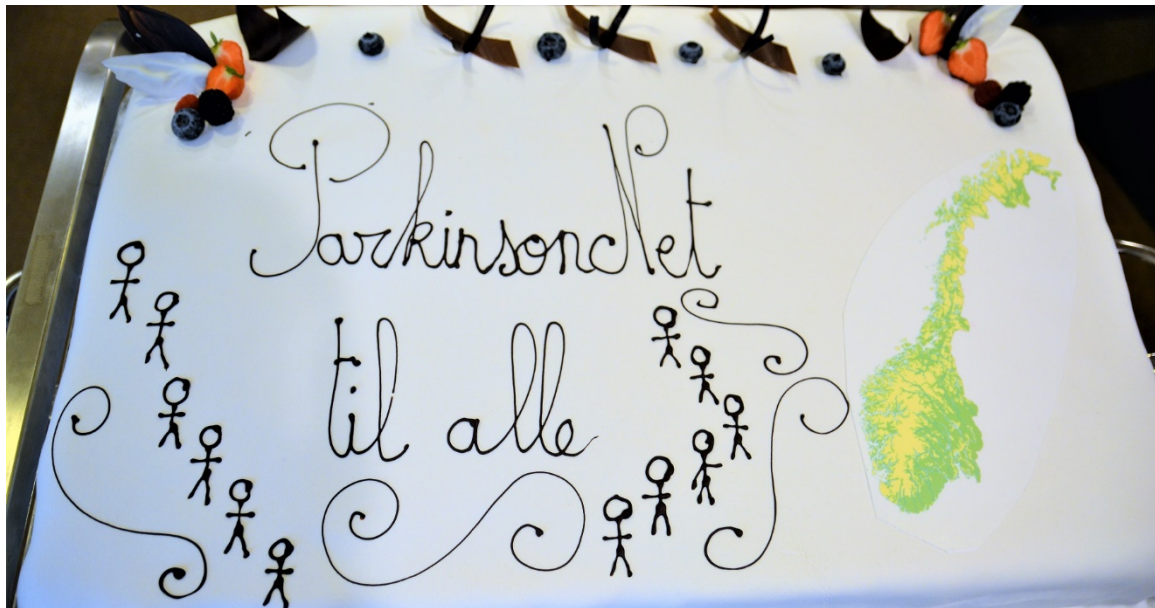 ParkinsonNet
til alle